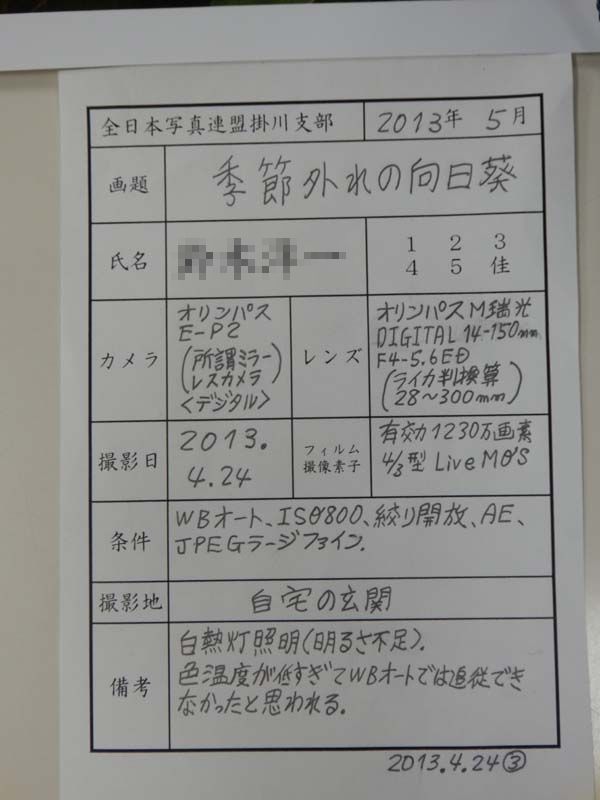 全日本写真連盟掛川支部
2013年 5月
画題
季節外れの向日葵
氏名
1 2 3
4 5 佳
カメラ
オリンパス
E-P2
(所謂ミラー
レスカメラ)
<デジタル>
レンズ
オリンパスM瑞光
DIGITAL 14-150mm
F4-5.6ED
(ライカ判換算
28~300mm)
撮影日
2013.
4.24
フィルム
撮像素子
有効1230万画素
4/3型 Live MOS
条件
WBオート、ISO800、絞り開放、AE、
JPEGラージファイン.
撮影地
自宅の玄関
備考
白熱灯照明(明るさ不足).
色温度が低すぎてWBオートでは追従でき
なかったと思われる.
2013.4.24③